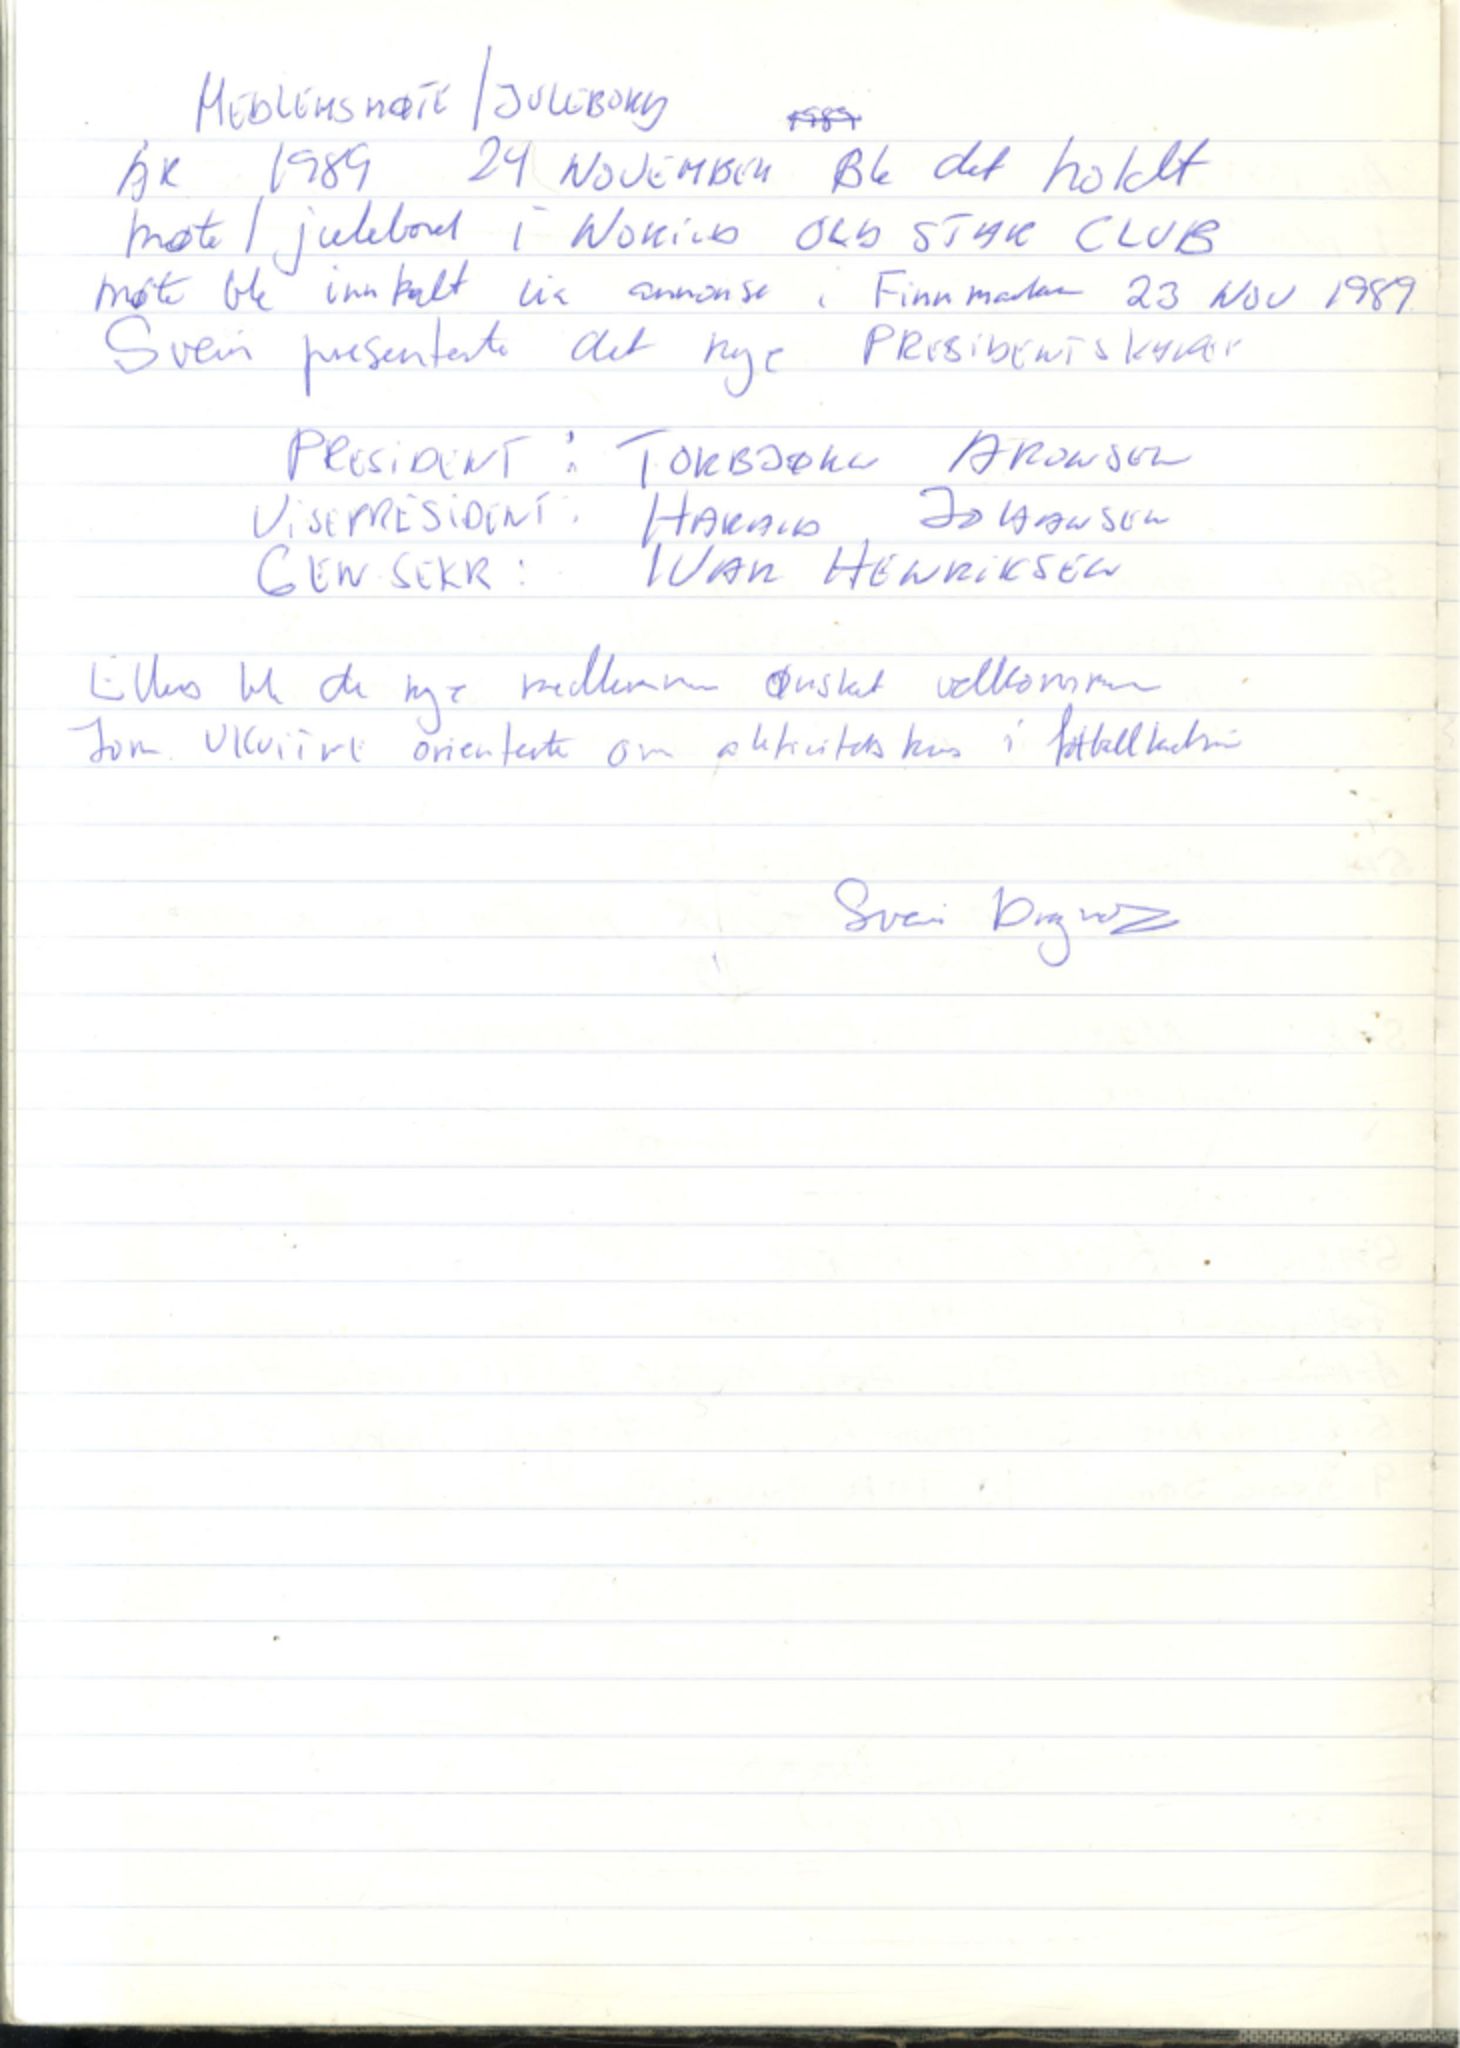 MEDLEMSMØTE / JULEBORD
ÅR 1989 24 NOVEMBER Ble det holdt
møte / julebord i NORILD OLD STAR CLUB
møte ble innkalt via annonse i Finnmarken 23 NOV 1989
Svein presenterte det nye PRESIDENTSKAPET
PRESIDENT : TORBJØRN ARONSEN
VISEPRESIDENT : HARALD JOHANSEN
GEN.SEKR : IVAR HENRIKSEN
Ellers ble de nye medlemmene ønsket velkommen
orienterte om i
Svein